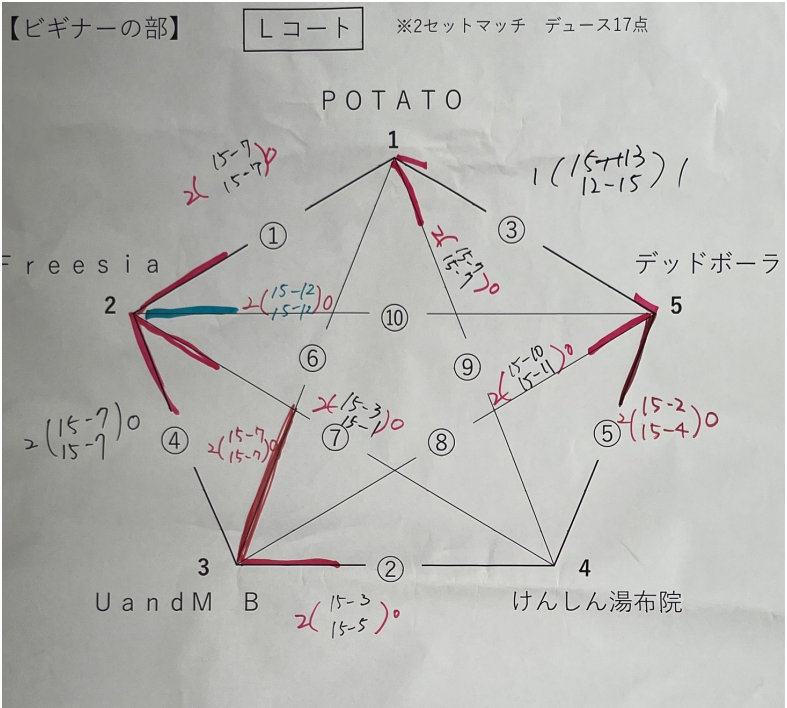 【ビギナーの部】 Lコート ※2セットマッチ デュース17点
POTATO
1
2(15-7 15-7)0
1(15-13 12-15)1
①
③
Freesia
デッドボーラ
2
5
2(15-7 15-7)0
2(15-12 15-12)0
⑩
⑥
⑨
2(15-10 15-11)0
2(15-3 15-1)0
2(15-7 15-7)0
④
2(15-7 15-7)0
⑦
⑧
⑤
2(15-2 15-4)0
3
②
4
UandM B
けんしん湯布院
2(15-3 15-5)0